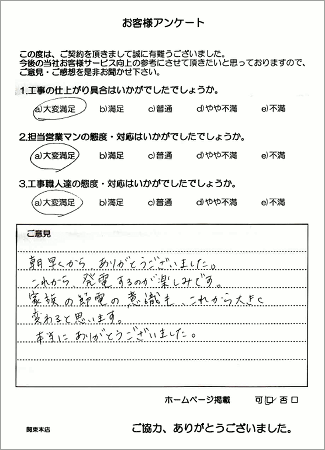 お客様アンケート
この度は、ご契約を頂きまして誠に有難うございました。
今後の当社お客様サービス向上の参考にさせて頂きたいと思っておりますので、
ご意見・ご感想を是非お聞かせ下さい。
1.工事の仕上がり具合はいかがでしたでしょうか。
a)大変満足 b)満足 c)普通 d)やや不満 e)不満
2.担当営業マンの態度・対応はいかがでしたでしょうか。
a)大変満足 b)満足 c)普通 d)やや不満 e)不満
3.工事職人達の態度・対応はいかがでしたでしょうか。
a)大変満足 b)満足 c)普通 d)やや不満 e)不満
ご意見
朝早くから、ありがとうございました。
これから、発電するのが楽しみです。
家族の節電の意識も、これから大きく
変わると思います。
本当にありがとうございました。
ホームページ掲載 可 否
関東本店
ご協力、ありがとうございました。